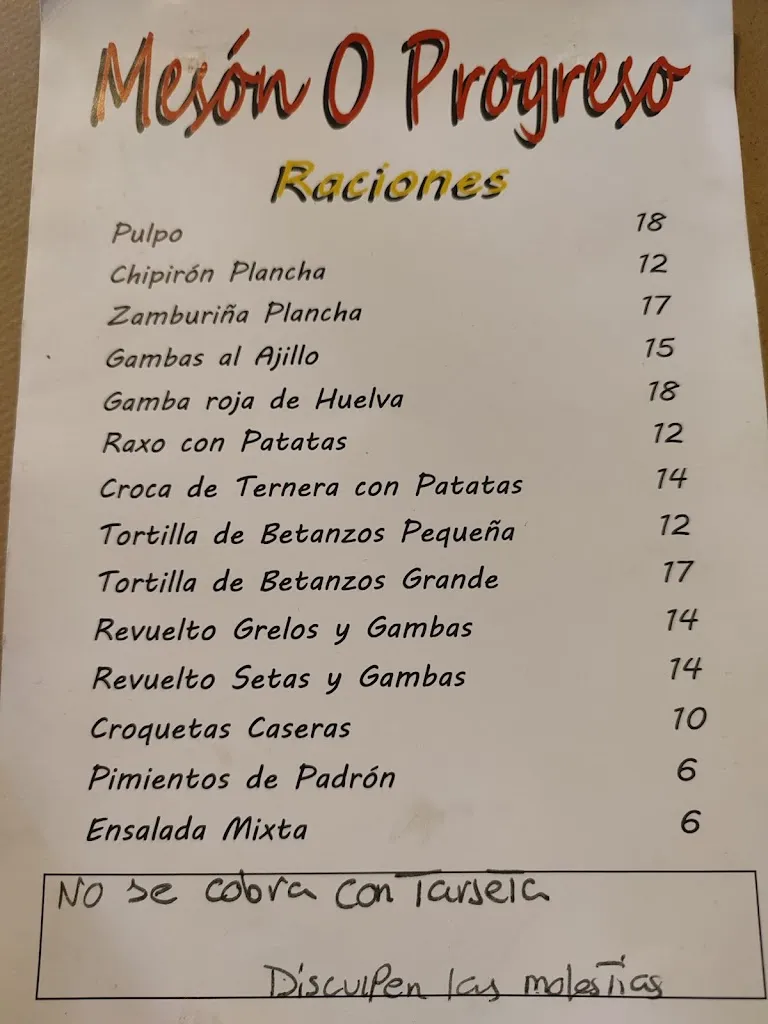 Mesón O Progreso
Raciones
Pulpo 18
Chipirón Plancha 12
Zamburiña Plancha 17
Gambas al Ajillo 15
Gamba roja de Huelva 18
Raxo con Patatas 12
Croca de Ternera con Patatas 14
Tortilla de Betanzos Pequeña 12
Tortilla de Betanzos Grande 17
Revuelto Grelos y Gambas 14
Revuelto Setas y Gambas 14
Croquetas Caseras 10
Pimientos de Padrón 6
Ensalada Mixta 6
No se cobra con Tarjeta
Disculpen las molestias